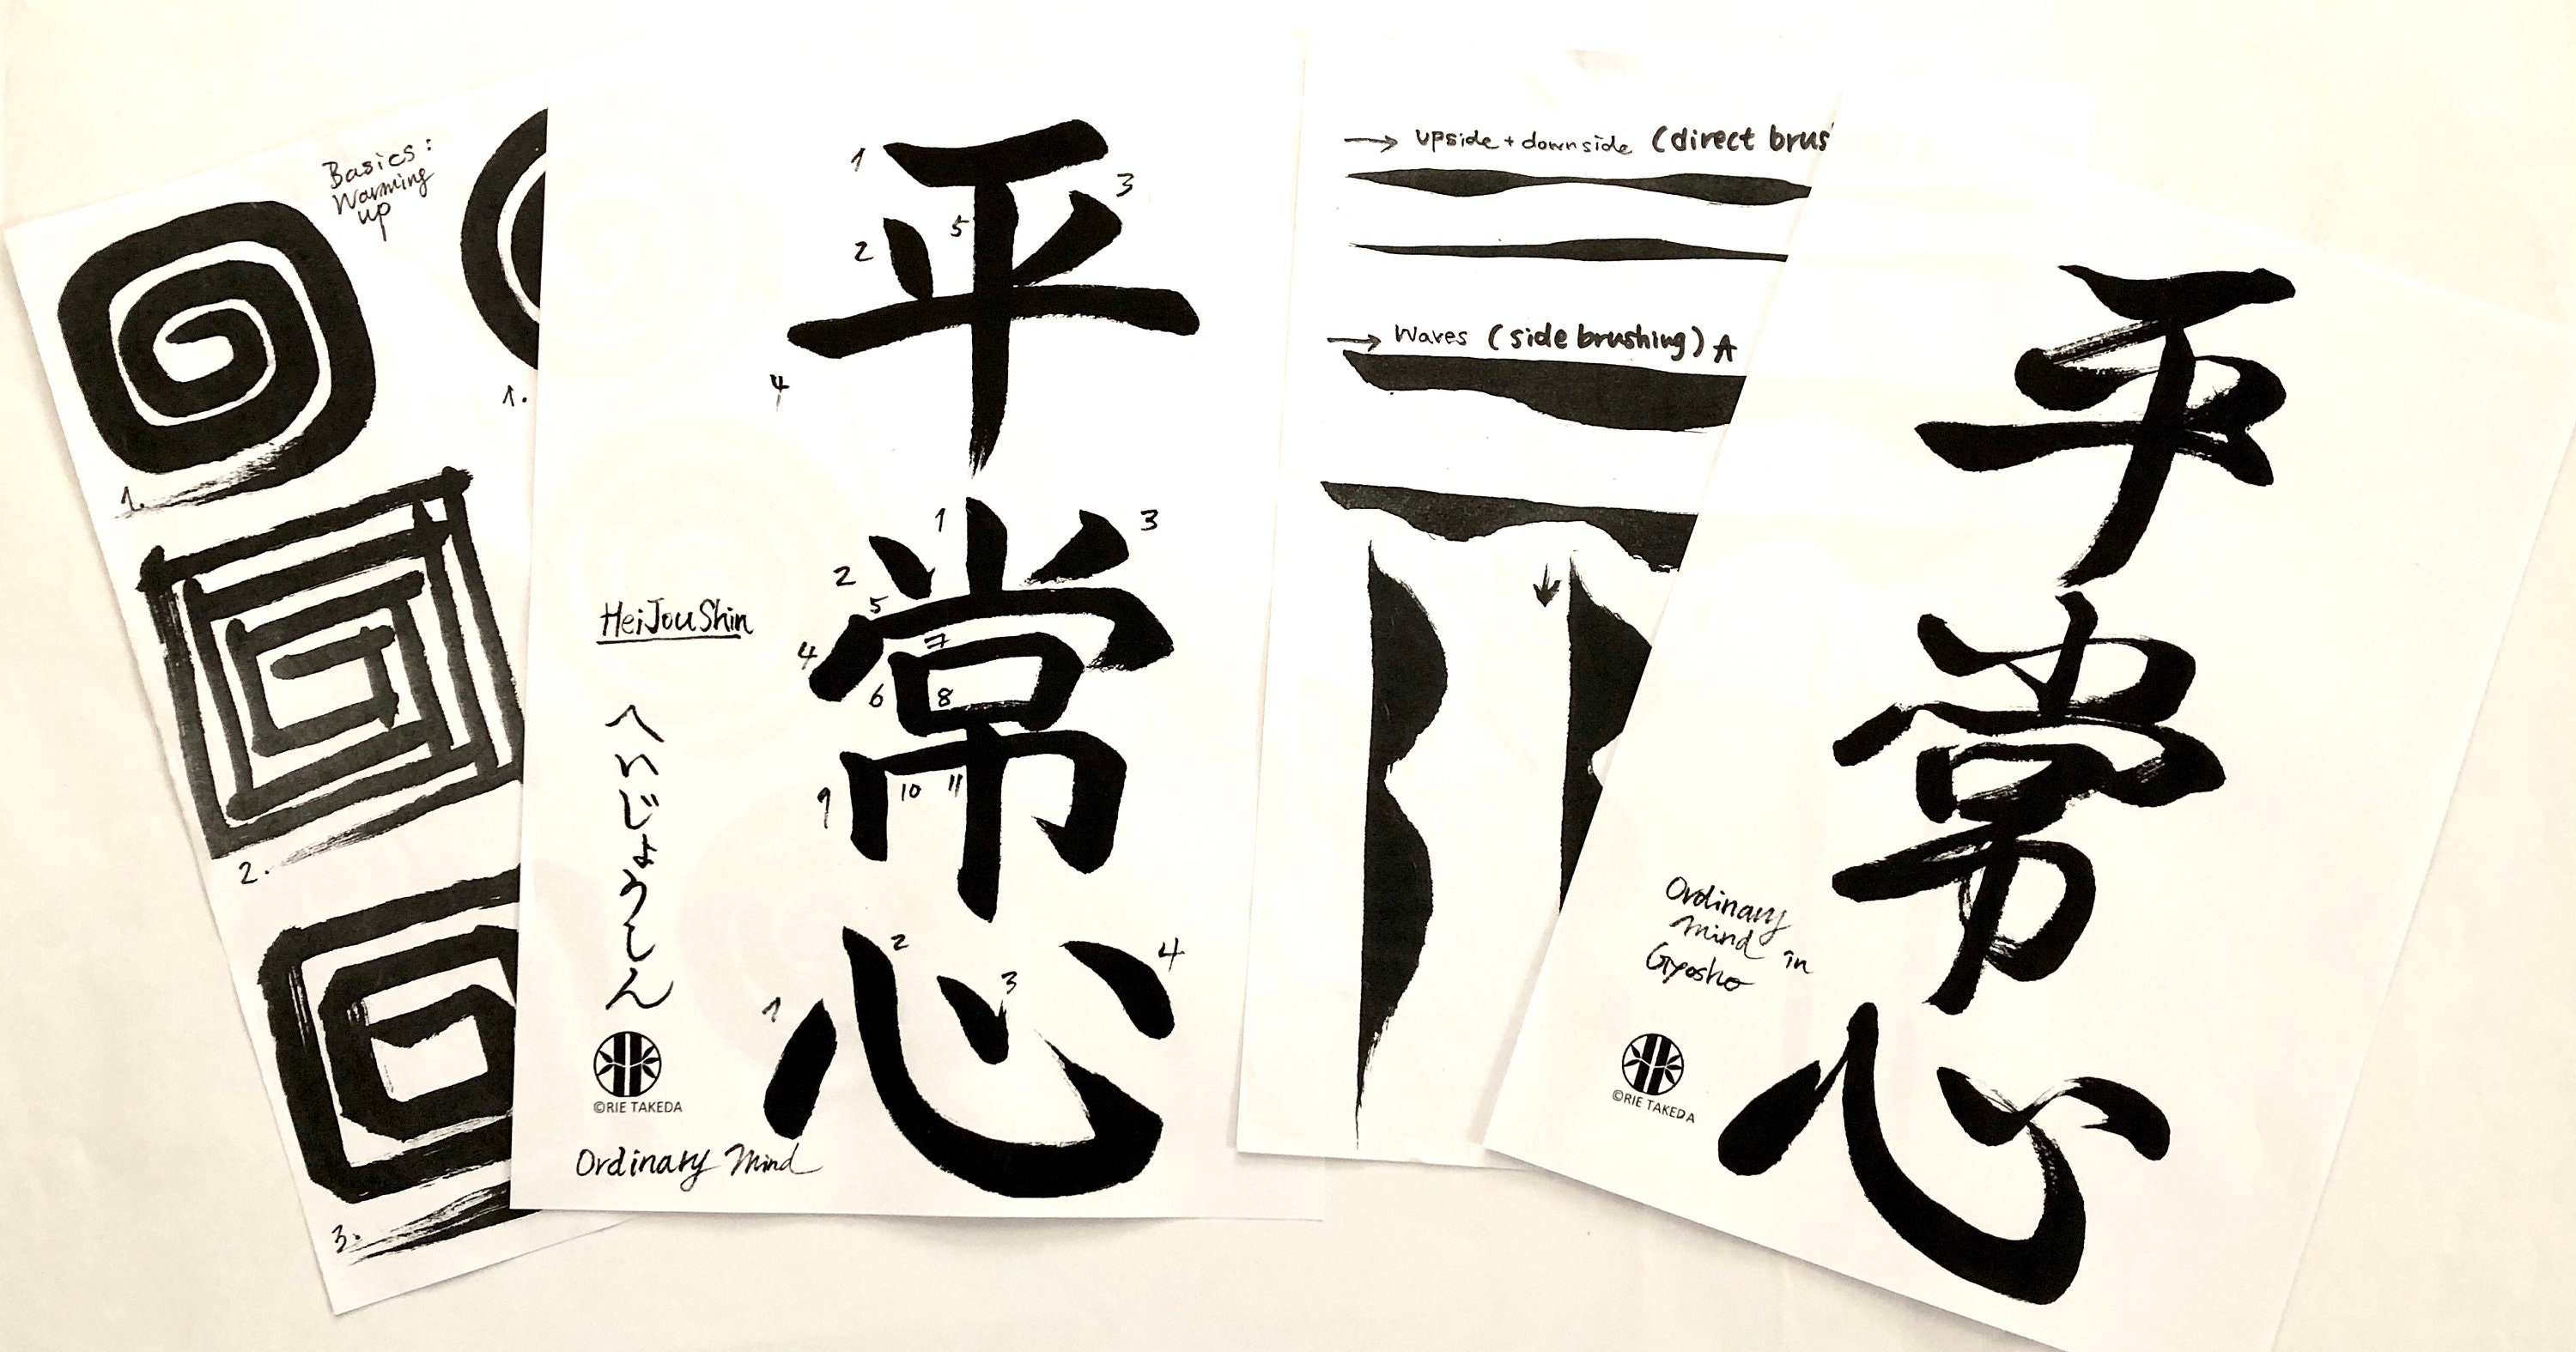 Basics:
Warming
up
1.
1.
2.
3.
平常心
1
2
3
4
5
1
2
3
4
5
6
7
8
9
10
11
1
2
3
4
HeiJouShin
へいじょうしん
©RIE TAKEDA
Ordinary Mind
→ upside + downside (direct brus
→ Waves (side brushing) A
↓
平常心
Ordinary
Mind in
Gyosho
©RIE TAKEDA